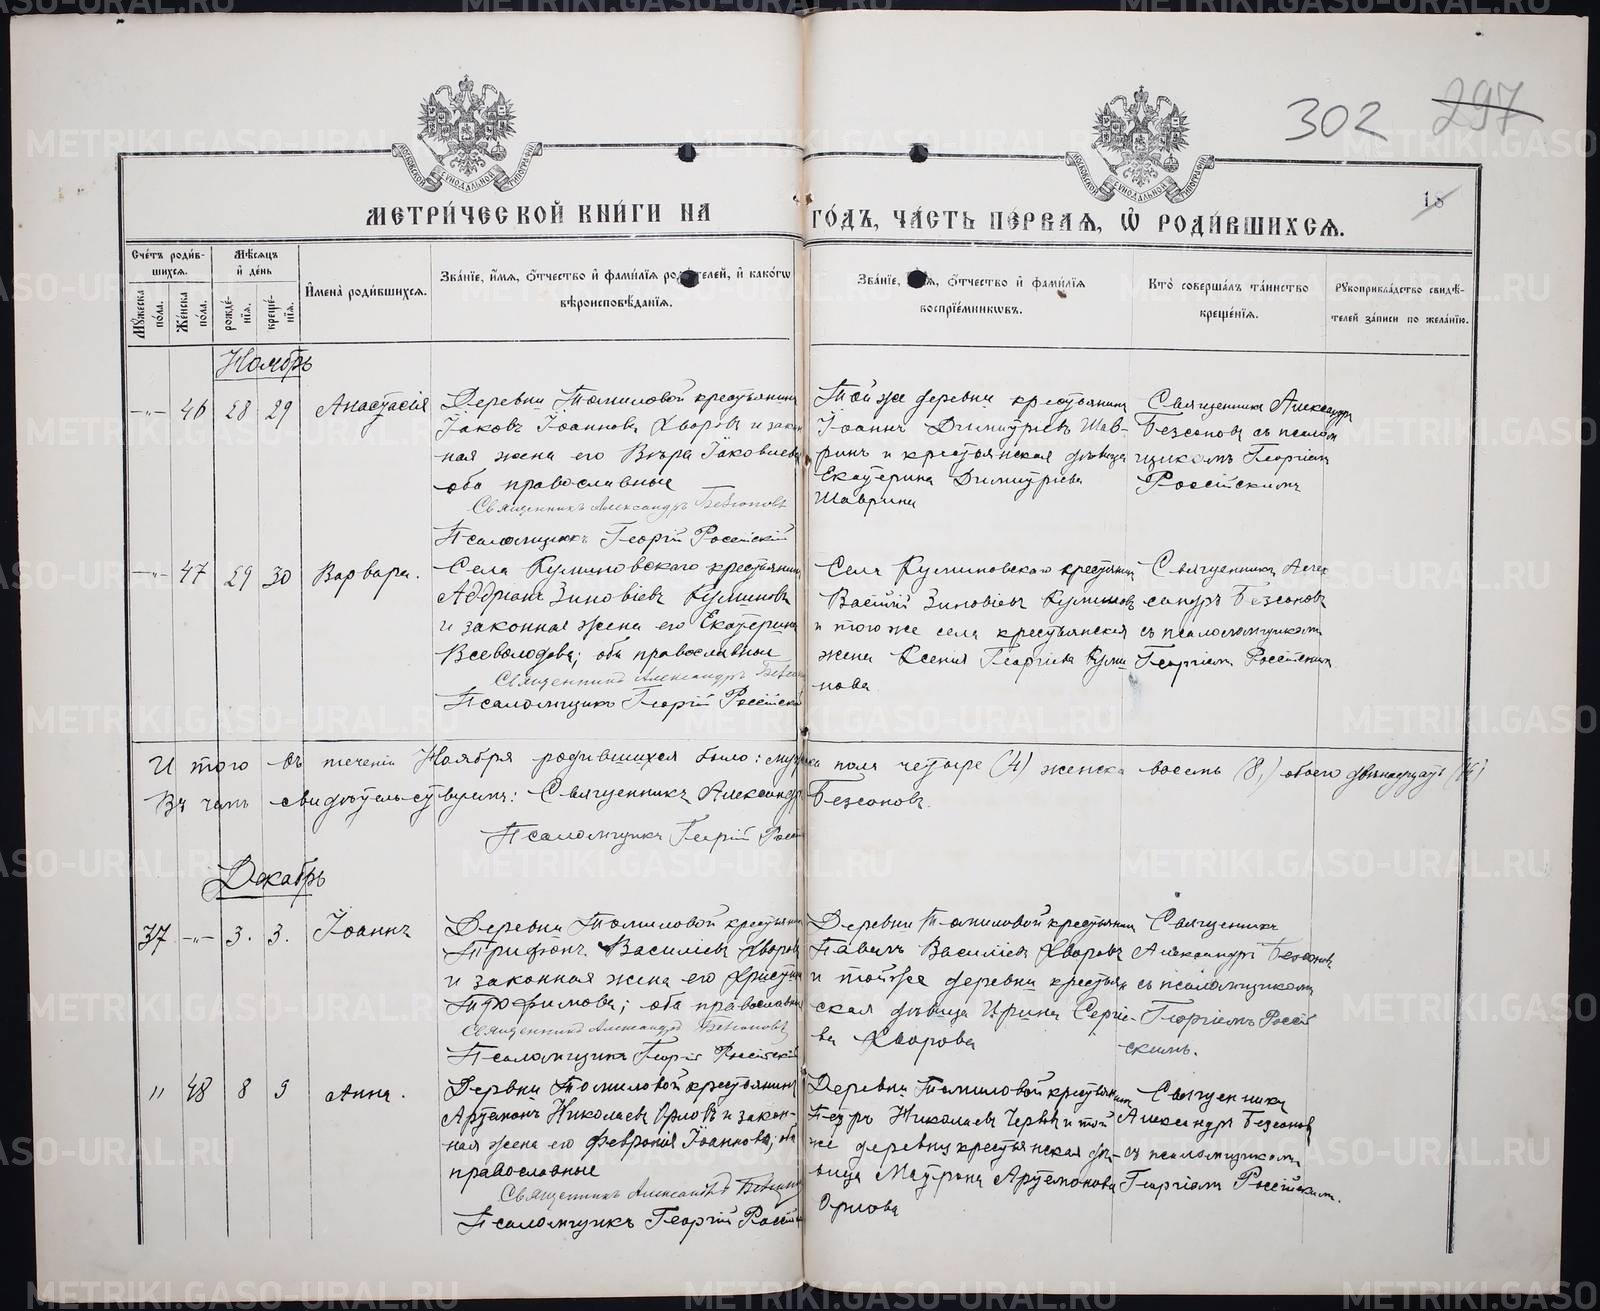 302 297
18
МЕТРИ́ЧЕСКОЙ КНИ́ГИ НА ГО́ДЪ, ЧА́СТЬ ПЕ́РВАѦ, Ѽ РОДИ́ВШИХСѦ.
Сче́тъ роди́вшихсѧ.
Мꙋ́жеска по́ла.
Же́нска по́ла.
Мѣ́сѧцъ и҆ де́нь
рожде́нїѧ.
креще́нїѧ.
И҆мена̀ роди́вшихсѧ.
Зва́нїе, и҆́мѧ, ѻ҆́тчество и҆ фами́лїѧ роди́телей, и҆ како́гѡ вѣроисповѣ́данїѧ.
Зва́нїе, и҆́мѧ, ѻ҆́тчество и҆ фами́лїѧ воспрїе́мникѡвъ.
Кто̀ соверша́лъ та́инство креще́нїѧ.
Рꙋкоприкла́дство свидѣ́телей за́писи по жела́нїю.
Ноябрь
-"- 46 28 29 Анастасія
Деревни Томиловой крестьянинъ
Іаковъ Іоанновъ Хворовъ и закон
ная жена его Вѣра Іаковлева
оба православные
Священникъ Александръ Безсоновъ
Псаломщикъ Георгій Россійскій
Той же деревни крестьянинъ
Іоаннъ Димитріевъ Шав-
ринъ и крестьянская дѣвица
Екатерина Димитріева
Шаврина
Священникъ Александръ
Безсоновъ съ псалом
щикомъ Георгіемъ
Россійскимъ
-"- 47 29 30 Варвара.
Села Куминовскаго крестьянинъ
Адріанъ Зиновіевъ Куминовъ
и законная жена его Екатерина
Всеволодова; оба православные
Священникъ Александръ
Псаломщикъ Георгій Россійскій
Села Куминовскаго крестьянинъ
Василій Зиновіевъ Куминовъ
и того же села крестьянская
жена Ксенія Георгіева Куми
нова
Священникъ Алек
сандръ Безсоновъ
съ псаломщикомъ
Георгіемъ Россійскимъ
Итого въ теченіи Ноября родившихся было: мужеска пола четыре (4) женска восемь (8) обоего двѣнадцать (12)
Въ чемъ свидѣтельствуемъ: Священникъ Александръ Безсоновъ.
Псаломщикъ Георгій
Декабрь
37 -"- 3. 3. Іоаннъ
Деревни Томиловой крестьянинъ
Трифонъ Василіевъ Хворовъ
и законная жена его
Трофимова; оба православные
Священникъ Александръ Безсоновъ
Псаломщикъ Георгій Россійскій
Деревни Томиловой крестьянинъ
Павелъ Василіевъ Хворовъ
и той же деревни крестьян
ская дѣвица Ирина Сергіе-
ва Хворова
Священникъ
Александръ Безсоновъ
съ псаломщикомъ
Георгіемъ Россій
скимъ.
" 48 8 9 Анна.
Деревни Томиловой крестьянинъ
Артемонъ Николаевъ Орловъ и закон-
ная жена его Февронія Іоаннова, оба
православные
Священникъ Александръ
Псаломщикъ Георгій
Деревни Томиловой крестьянинъ
Петръ Николаевъ и той
же деревни крестьянская дѣ-
вица Матрона Артемонова
Орлова
Священникъ
Александръ Безсоновъ
съ псаломщикомъ
Георгіемъ Россійскимъ.
METRIKI.GASO-URAL.RU